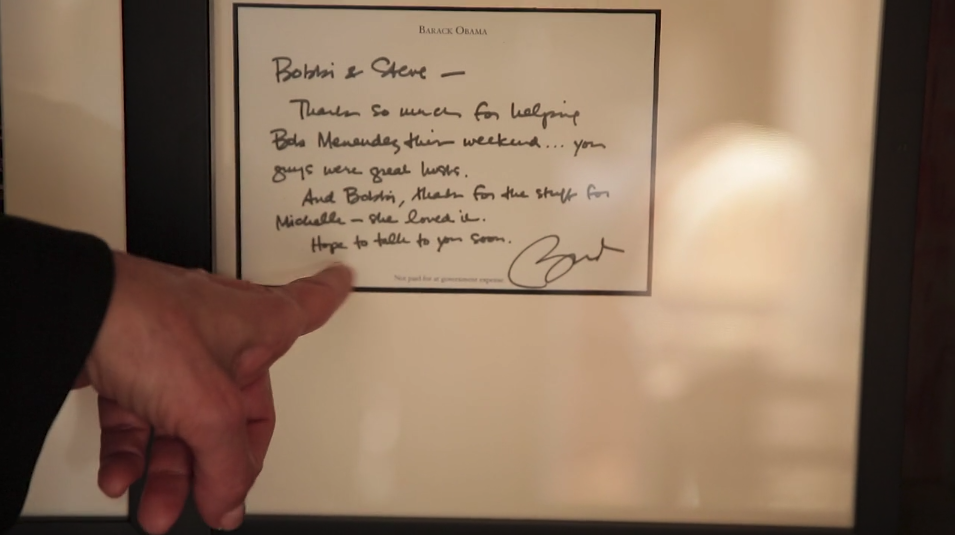 BARACK OBAMA
Bobbi & Steve —
Thanks so much for helping
Bob Menendez this weekend... you
guys were great hosts.
And Bobbi, thanks for the stuff for
Michelle — she loved it.
Hope to talk to you soon.
Barack
Not paid for at government expense